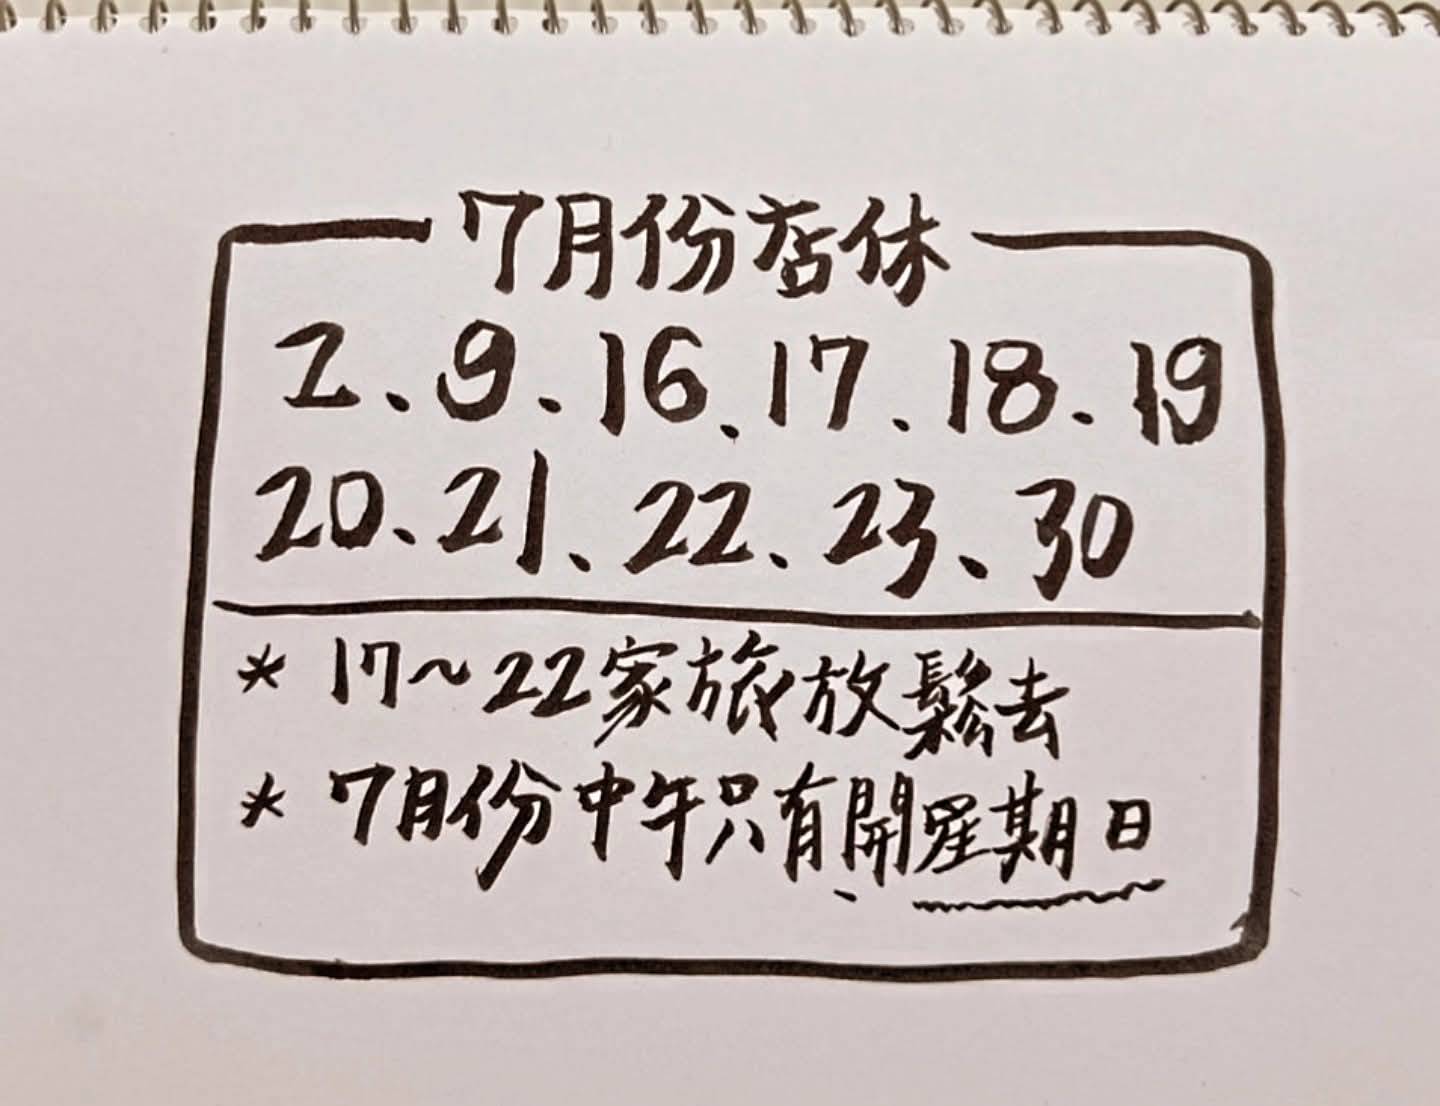 7月份店休
2、9、16、17、18、19
20、21、22、23、30
* 17~22家旅放鬆去
* 7月份中午只有開星期日